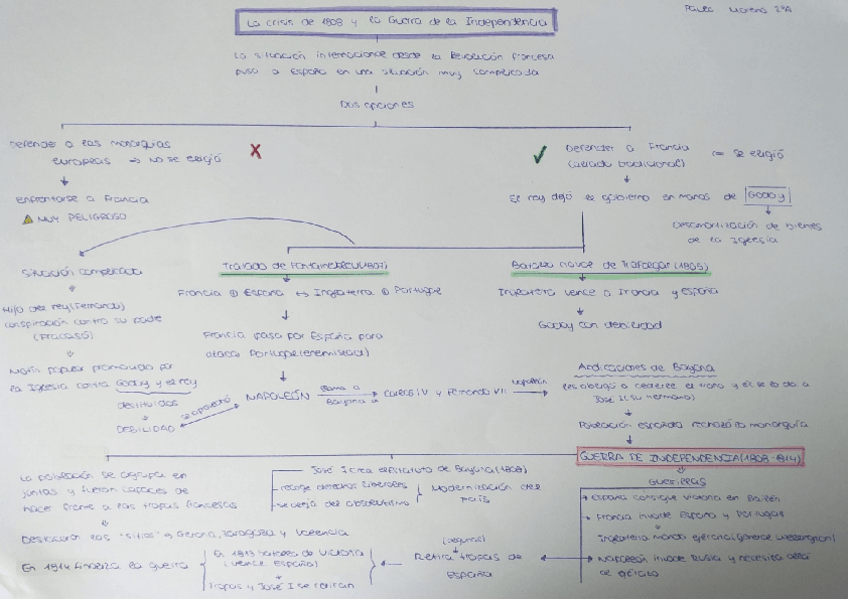 Paula Moreno 2ºA
La crisis de 1808 y la Guerra de la Independencia
La situación internacional desde la Revolución francesa
puso a España en una situación muy complicada
Dos opciones
Defender a las monarquías
europeas → No se eligió
Defender a Francia
(aliado tradicional)
Se eligió
Enfrentarse a Francia
MUY PELIGROSO
El rey dejó el gobierno en manos de Godoy
Desamortización de bienes
de la Iglesia
Situación complicada
Tratado de Fontainebleau (1807)
Batalla naval de Trafalgar (1805)
Hijo del rey (Fernando)
conspiración contra su padre
(Fracasó)
Francia España ↔ Inglaterra Portugal
Inglaterra vence a Francia y España
Francia pasa por España para
atacar Portugal (enemistad)
Godoy con debilidad
Motín popular promovido por
la Iglesia contra Godoy y el rey
destituidos
DEBILIDAD
se aprovechó
NAPOLEÓN
llama a
Bayona a
Carlos IV y Fernando VII
Napoleón
Abdicaciones de Bayona
les obligó a cederle el trono y él se lo da a
José I (su hermano)
Población española rechazó la monarquía
GUERRA DE INDEPENDENCIA (1808-1814)
La población se agrupa en
juntas y fueron capaces de
hacer frente a las tropas francesas
José I crea el Estatuto de Bayona (1808)
recoge derechos liberales
se aleja del absolutismo
Modernización del
país
Guerrillas
España consigue victoria en Bailén
Francia invade España y Portugal
Inglaterra manda ejército (general Wellington)
Napoleón invade Rusia y necesita allí
al ejército
Destacaron los "sitios" Gerona, Zaragoza y Valencia
En 1814 finaliza la guerra
En 1813 batalla de Victoria
(vence España)
Tropas y José I se retiran
Retira tropas de
España